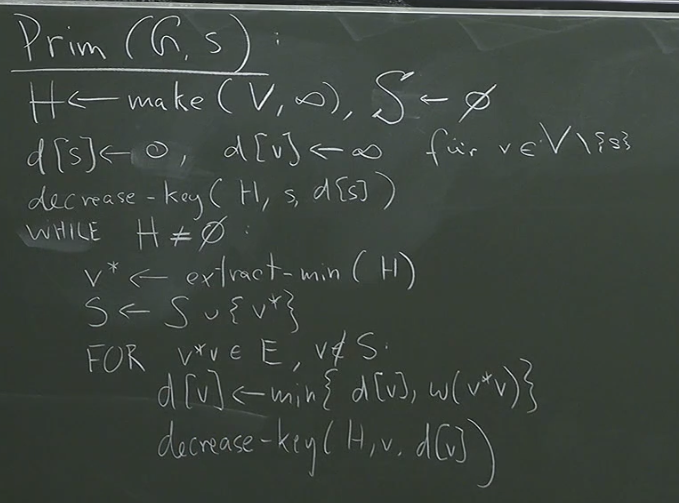 Prim (G, s) :
H ← make (V, ∞), S ← ∅
d[s] ← 0, d[v] ← ∞ für v ∈ V \ {s}
decrease-key (H, s, d[s])
WHILE H ≠ ∅ :
v* ← extract-min (H)
S ← S ∪ {v*}
FOR v*v ∈ E, v ∉ S:
d[v] ← min{ d[v], w(v*v)}
decrease-key (H, v, d[v])